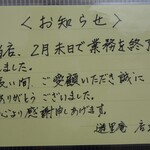 ＜お知らせ＞
当店、2月末日で業務を終了
しました。
長い間、ご愛顧いただき誠に
ありがとうございました。
心より感謝申しあげます。
店主